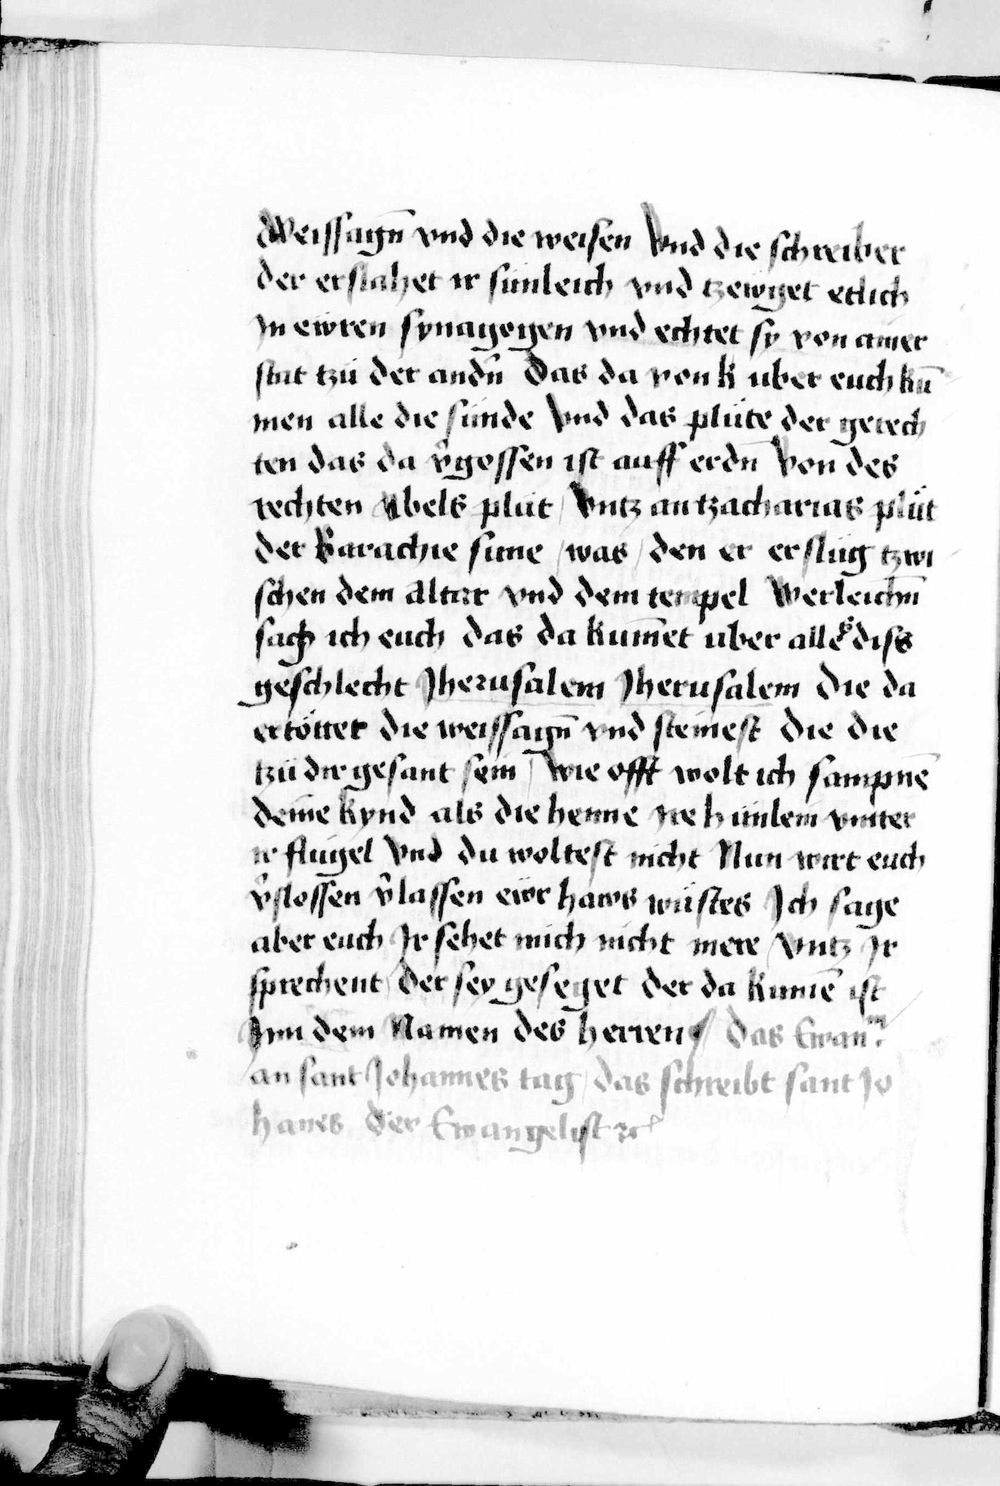 Weissagñ vnd die weisen Vnd die schreiber
der erslahet ir sünleich vnd tzewget etlich
In ewren synagogen vnd echtet sy von ainer
stat tzü der andñ Das da von k uber euch kü̅
men alle die sünde Vnd das plüte der gerech
ten das da v̂gossen ist auff erdn̅ Von des
rechten Abels plüt / Vntz an tzacharias plüt
der Barachie sune / was / den er erslüg tzwi
schen dem Altar vnd dem tempel Werleichn̅
sag ich euch das da kum̅et uber alle diss
geschlecht Jherusalem Jherusalem Die da
ertöttet die weissagn̅ vnd steinest Die die
tzü dir gesant sein / Wie offt wolt ich sampne̅
deine kynd als die henne ire hünlein vnnter
ir flügel Vnd du woltest nicht Nun wirt euch
v̂slossen v̂lassen ewr haws wüstes Ich sage
aber euch Ir sehet mich nicht mere / Vntz Ir
sprechent / Der sey geseget der da kume̅ ist
Inn dem Namen des herren / Das Ewan̅
an sant Johannes tag / das schreibt sant Jo
hanes Der Ewangelist ꝛc